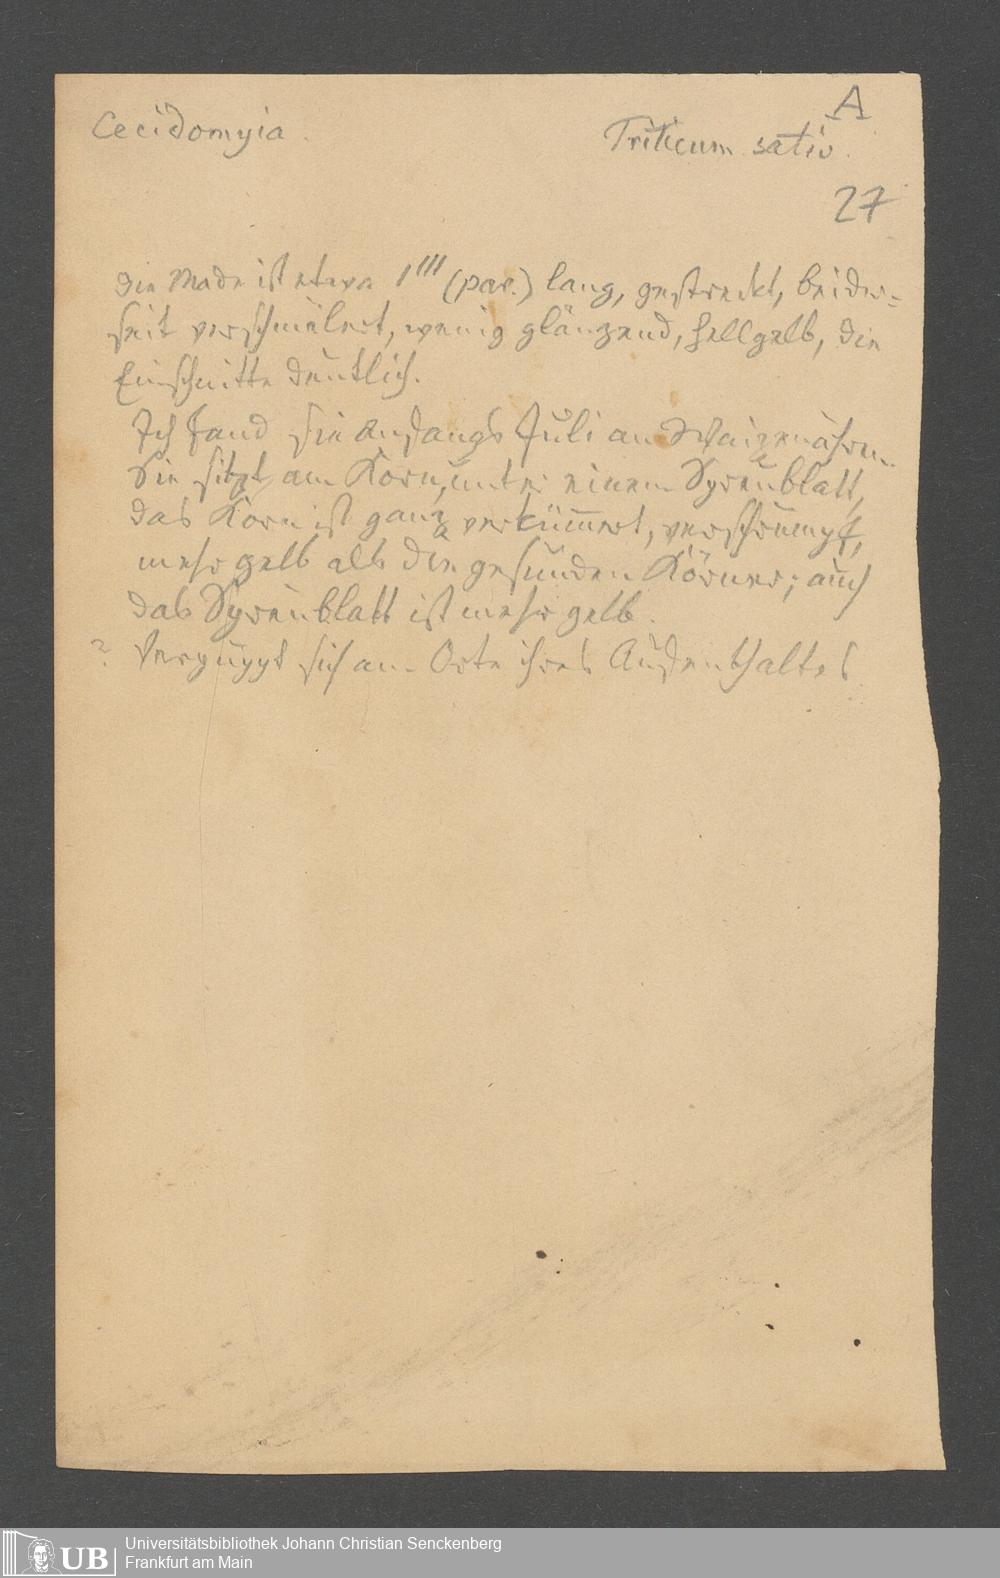 A
Cecidomyia.
Triticum sativ.
27
Die Made ist etwa 1''' (par.) lang, gestreckt, beider=
seit verschmälert, wenig glänzend, hellgelb, die
Einschnitte deutlich.
Ich fand sie Anfangs Juli an Waizenähren.
Sie sitzt am Korn, unter einem Spreublatt,
das Korn ist ganz verkümmert, verschrumpft,
mehr gelb als die gesunden Körner; auch
das Spreublatt ist mehr gelb.
? Verpuppt sich am Orte ihres Aufenthaltes
UB
Universitätsbibliothek Johann Christian Senckenberg
Frankfurt am Main